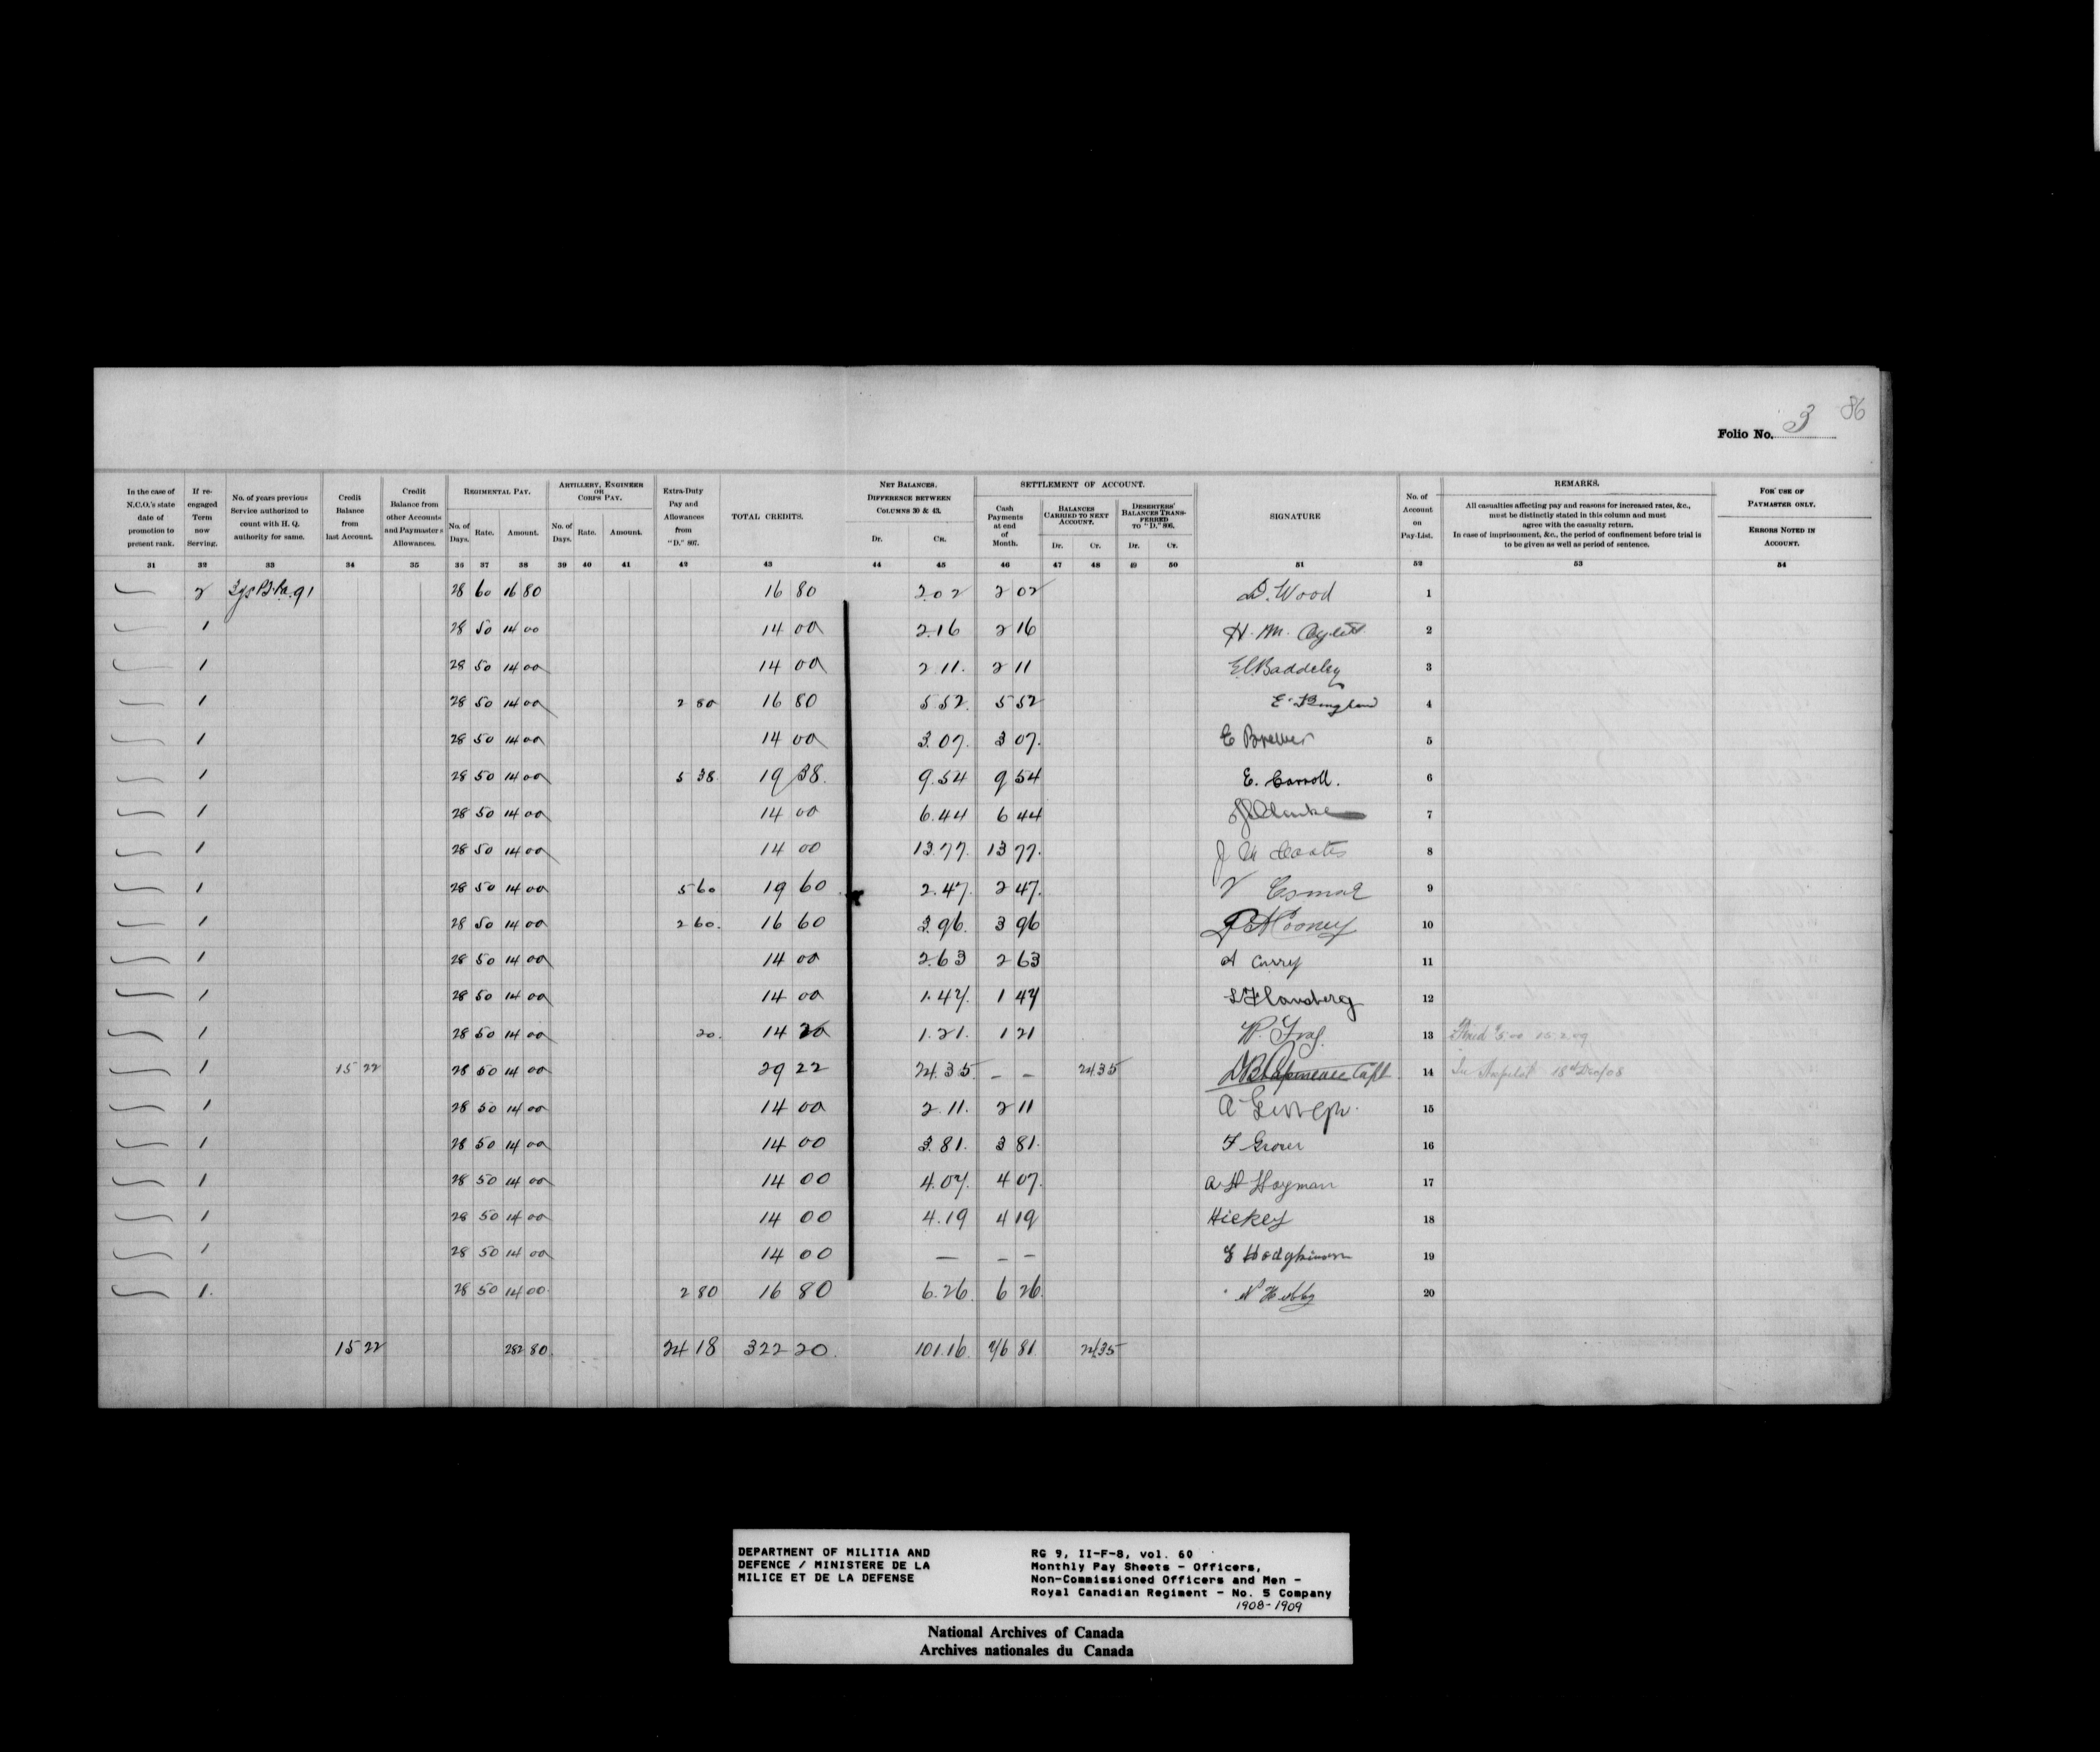 Folio No. 3 86
In the case of N.C.O.'s state date of promotion to present rank.
If re-engaged Term now Serving.
No. of years previous Service authorized to count with H. Q. authority for same.
Credit Balance from last Account.
Credit Balance from other Accounts and Paymaster's Allowances.
REGIMENTAL PAY.
No. of Days. Rate. Amount.
ARTILLERY, ENGINEER OR CORPS PAY.
No. of Days. Rate. Amount.
Extra-Duty Pay and Allowances from "D." 807.
TOTAL CREDITS.
NET BALANCES.
DIFFERENCE BETWEEN COLUMNS 30 & 43.
Dr. Cr.
SETTLEMENT OF ACCOUNT.
Cash Payments at end of Month.
BALANCES CARRIED TO NEXT ACCOUNT.
Dr. Cr.
DESERTERS' BALANCES TRANSFERRED TO "D." 806.
Dr. Cr.
SIGNATURE
No. of Account on Pay-List.
REMARKS.
All casualties affecting pay and reasons for increased rates, &c., must be distinctly stated in this column and must agree with the casualty return.
In case of imprisonment, &c., the period of confinement before trial is to be given as well as period of sentence.
FOR USE OF PAYMASTER ONLY.
ERRORS NOTED IN ACCOUNT.
31 32 33 34 35 36 37 38 39 40 41 42 43 44 45 46 47 48 49 50 51 52 53 54
2 28 60 16 80 16 80 2.02 2 02 D. Wood 1
1 28 50 14 00 14 00 2.16 2 16 H. M. 2
1 28 50 14 00 14 00 2.11. 2 11 Baddeley 3
1 28 50 14 00 2 80 16 80 5 52. 5 52 E. 4
1 28 50 14 00 14 00 3.07. 3 07. E Brewer 5
1 28 50 14 00 5 38 19 38. 9.54 9 54 E. Carroll. 6
1 28 50 14 00 14 00 6.44 6 44 Clarke 7
1 28 50 14 00 14 00 13.77. 13 77. J Coates 8
1 28 50 14 00 5 60 19 60 2.47. 2 47. 9
1 28 50 14 00 2 60. 16 60 3.96. 3 96 Cooney 10
1 28 50 14 00 14 00 2.63 2 63 A Curry 11
1 28 50 14 00 14 00 1.47. 1 47 Flansberg 12
1 28 50 14 00 20. 14 20 1.21. 1 21 13 Fined 5.00 15.2.09
1 15 22 28 50 14 00 29 22 24.35 – – 24 35 Capt 14 In Hospital 18 Dec/08
1 28 50 14 00 14 00 2.11. 2 11 A 15
1 28 50 14 00 14 00 3.81. 3 81. F Grover 16
1 28 50 14 00 14 00 4.07. 4 07. A H Hayman 17
1 28 50 14 00 14 00 4.19 4 19 Hickey 18
1 28 50 14 00 14 00 — – – E Hodgkinson 19
1. 28 50 14 00. 2 80 16 80 6.26. 6 26. 20
15 22 282 80. 24 18 322 20. 101.16. 76 81 24 35
DEPARTMENT OF MILITIA AND
DEFENCE / MINISTERE DE LA
MILICE ET DE LA DEFENSE
RG 9, II-F-8, vol. 60
Monthly Pay Sheets - Officers,
Non-Commissioned Officers and Men -
Royal Canadian Regiment - No. 5 Company
1908-1909
National Archives of Canada
Archives nationales du Canada